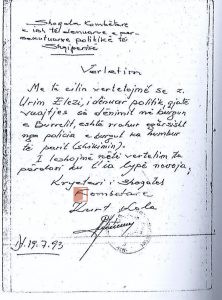 Shoqata Kombëtare
e ish të denuarve e per-
sekutuarve politikë të
Shqiperisë
Vertetim
Me të cilin vertetojmë se z.
Urim Elezi, i denuar politik, gjatë
vuajtjes së denimit në burgun
e Burrelit, është rrahur egërsisht
nga policia e burgut ka humbur
të parit (shikimin).
I leshojmë këtë vertetim ta
paraqesi ku t'ia lypë nevoja,
Kryetari i Shoqatës
Kombëtare
Kurt Kola
19.7.93